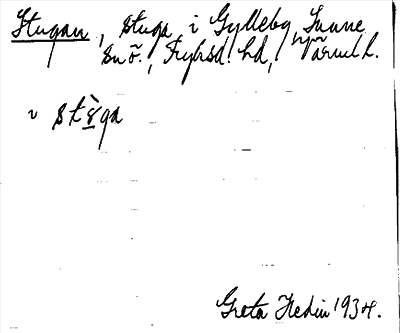 Stugan, stuga i Gylleby, Sunne
sn ö., Fryksd. hd, Värml.
i st
Greta Hedin 1934.